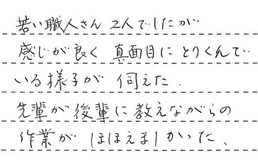 若い職人さん 2人でしたが
感じが良く 真面目にとりくんで
いる様子が 伺えた.
先輩が後輩に教えながらの
作業が ほほえましかった、